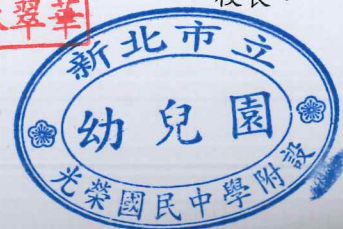 校長
翠華
新北市立
幼兒園
光榮國民中學附設